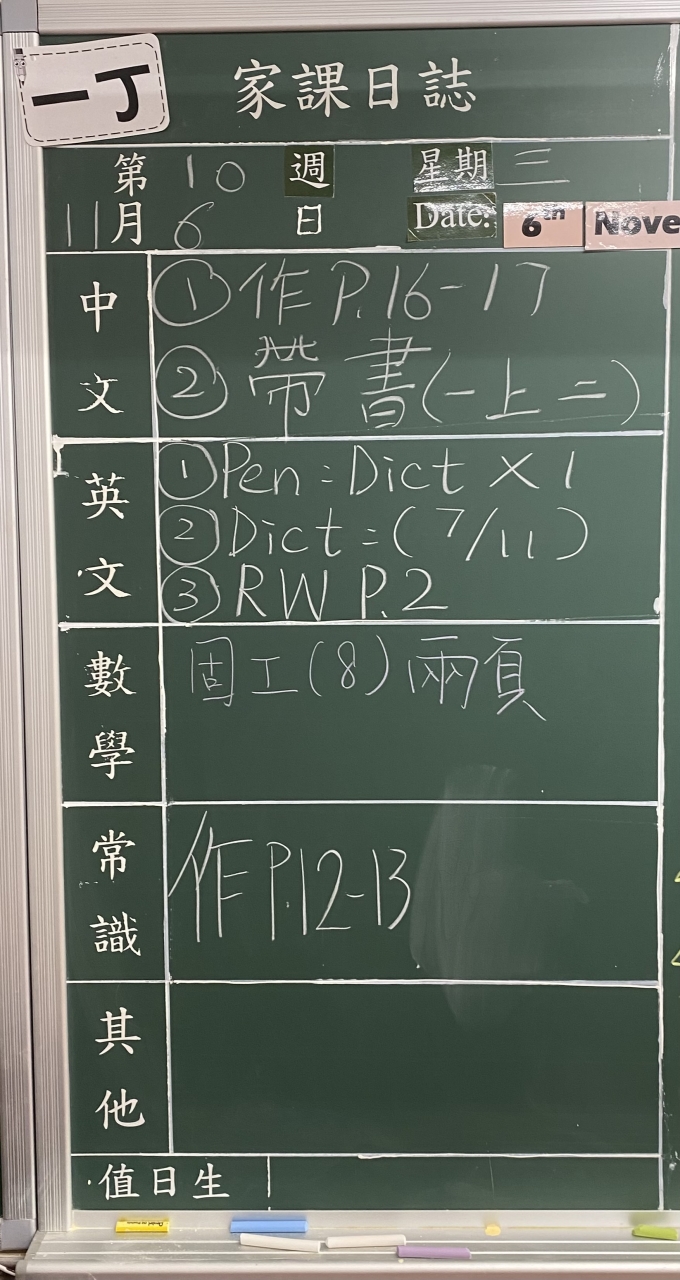 一丁
家課日誌
第 10 週 星期 三
11月 6 日 Date: 6th Nove
中文
① 作 P.16-17
② 帶書(一上二)
英文
① Pen : Dict × 1
② Dict : (7/11)
③ RW P.2
數學
固工(8)兩頁
常識
作 P.12-13
其他
值日生